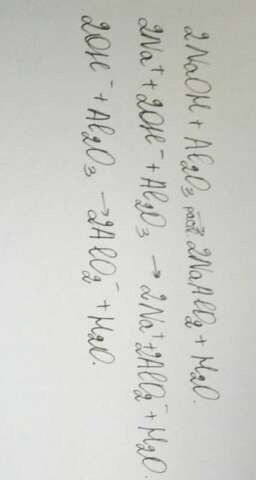 2NaOH + Al₂O₃ раст→ 2NaAlO₂ + H₂O.
2Na⁺ + 2OH⁻ + Al₂O₃ → 2Na⁺ + 2AlO₂⁻ + H₂O.
2OH⁻ + Al₂O₃ → 2AlO₂⁻ + H₂O.